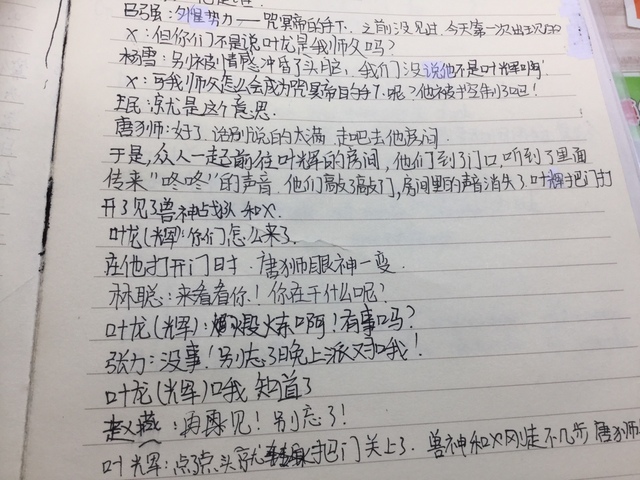 巴多强：外星势力——咒冥帝的手下，之前没见过，今天第一次出现的
X：但你们不是说叶龙是我师父吗？
杨雪：别被情感冲昏了头脑，我们没说他不是叶辉啊
X：可我师父怎么会成为咒冥帝的手下呢？他被控制了吧！
王民：就是这个意思
唐狮：好了，话别说的太满，走吧去他房间.
于是，众人一起前往叶辉的房间，他们到了门口，听到了里面
传来"咚咚"的声音，他们敲了敲门，房间里的声音消失了，叶辉把门打
开了见了兽神战队和X.
叶龙(辉)：你们怎么来了
在他打开门时，唐狮眼神一变.
林聪：来看看你！你在干什么呢？
叶龙(辉)：煅炼啊！有事吗？
张力：没事！别忘了晚上派对哦！
叶龙(辉)：哦 知道了
赵燕：再见！别忘了！
叶辉：点了点头就把门关上了．兽神和X刚走不几步 唐狮